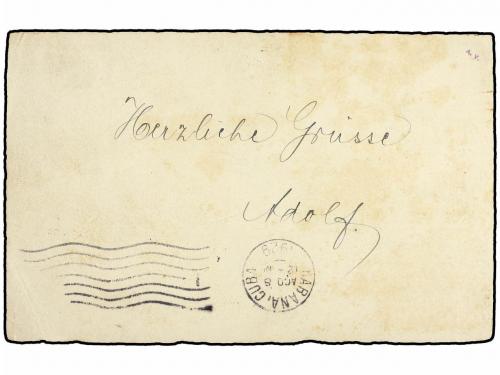 Herzliche Grüsse
Adolf.
HABANA, CUBA
AGO 8
1929